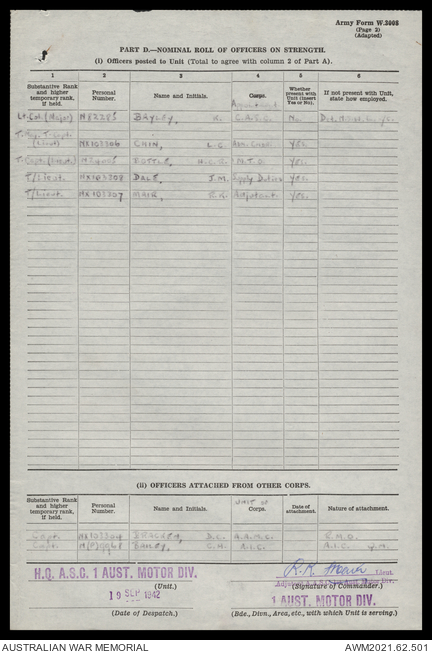 Army Form W.3008
(Page 2)
(Adapted)
PART D.—NOMINAL ROLL OF OFFICERS ON STRENGTH.
(i) Officers posted to Unit (Total to agree with column 2 of Part A).
1 2 3 4 5 6
Substantive Rank and higher temporary rank, if held. Personal Number. Name and Initials. Corps. Whether present with Unit (insert Yes or No). If not present with Unit, state how employed.
Appointment
Lt-Col. (Major) BAYLEY, No.
(Lieut) NX103306 CAIN, L.G. Yes.
BOTTLE, H.C.R. M.T.O. Yes.
T/Lieut. NX103208 DALE, J.M. Supply Duties Yes.
T/Lieut. NX103307 MAIR, R.K. Adjutant Yes.
(ii) OFFICERS ATTACHED FROM OTHER CORPS.
Substantive Rank and higher temporary rank, if held. Personal Number. Name and Initials. UNIT OR Corps. Date of attachment. Nature of attachment.
Capt. NX103304 D.C. A.A.M.C. R.M.O.
Capt. BAILEY, A.I.C. A.I.C. Q.M.
H.Q. A.S.C. 1 AUST. MOTOR DIV.
(Unit.)
R.K. Mair Lieut.
(Signature of Commander.)
19 SEP 1942
1 AUST. MOTOR DIV.
(Date of Despatch.)
(Bde., Divn., Area, etc., with which Unit is serving.)
AUSTRALIAN WAR MEMORIAL
AWM2021.62.501